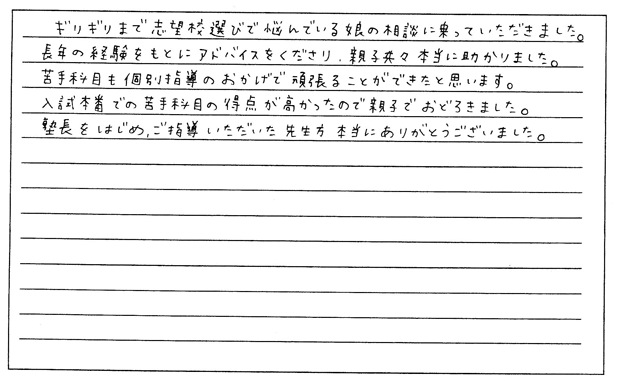 ギリギリまで志望校選びで悩んでいる娘の相談に乗っていただきました。
長年の経験をもとにアドバイスをくださり、親子共々本当に助かりました。
苦手科目も個別指導のおかげで頑張ることができたと思います。
入試本番での苦手科目の得点が高かったので親子でおどろきました。
塾長をはじめ、ご指導いただいた先生方本当にありがとうございました。